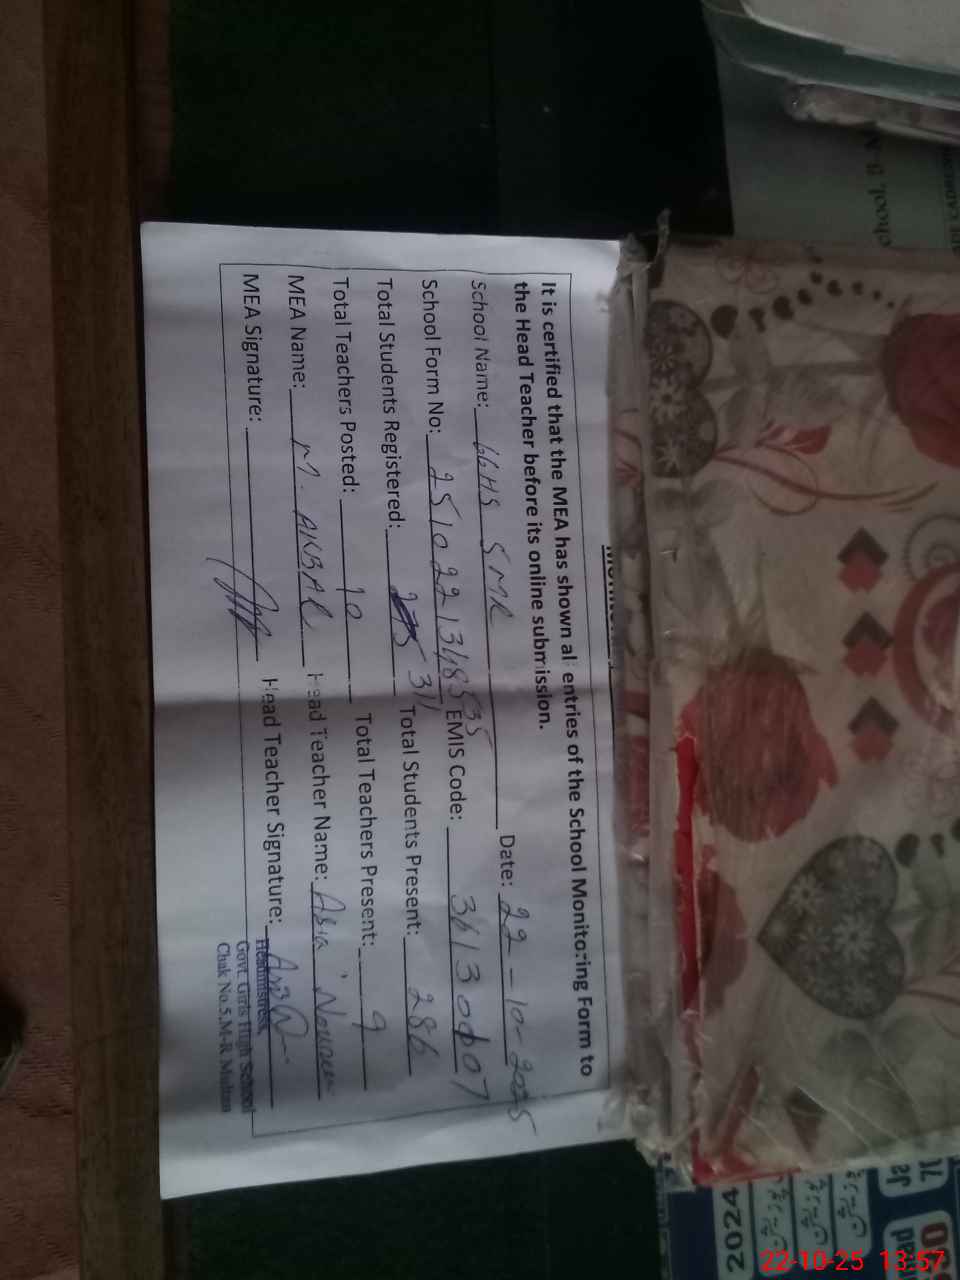 It is certified that the MEA has shown all entries of the School Monitoring Form to
the Head Teacher before its online submission.
School Name: GGHS 5MR Date: 22-10-2025
School Form No: 2510221348535 EMIS Code: 36130007
Total Students Registered: 311 Total Students Present: 286
Total Teachers Posted: 10 Total Teachers Present: 9
MEA Name: M. AKBAR Head Teacher Name: Asia
MEA Signature: Head Teacher Signature:
Headmistress
Govt. Girls High School
Chak No.5.M-R Multan
2024
22-10-25 13:57